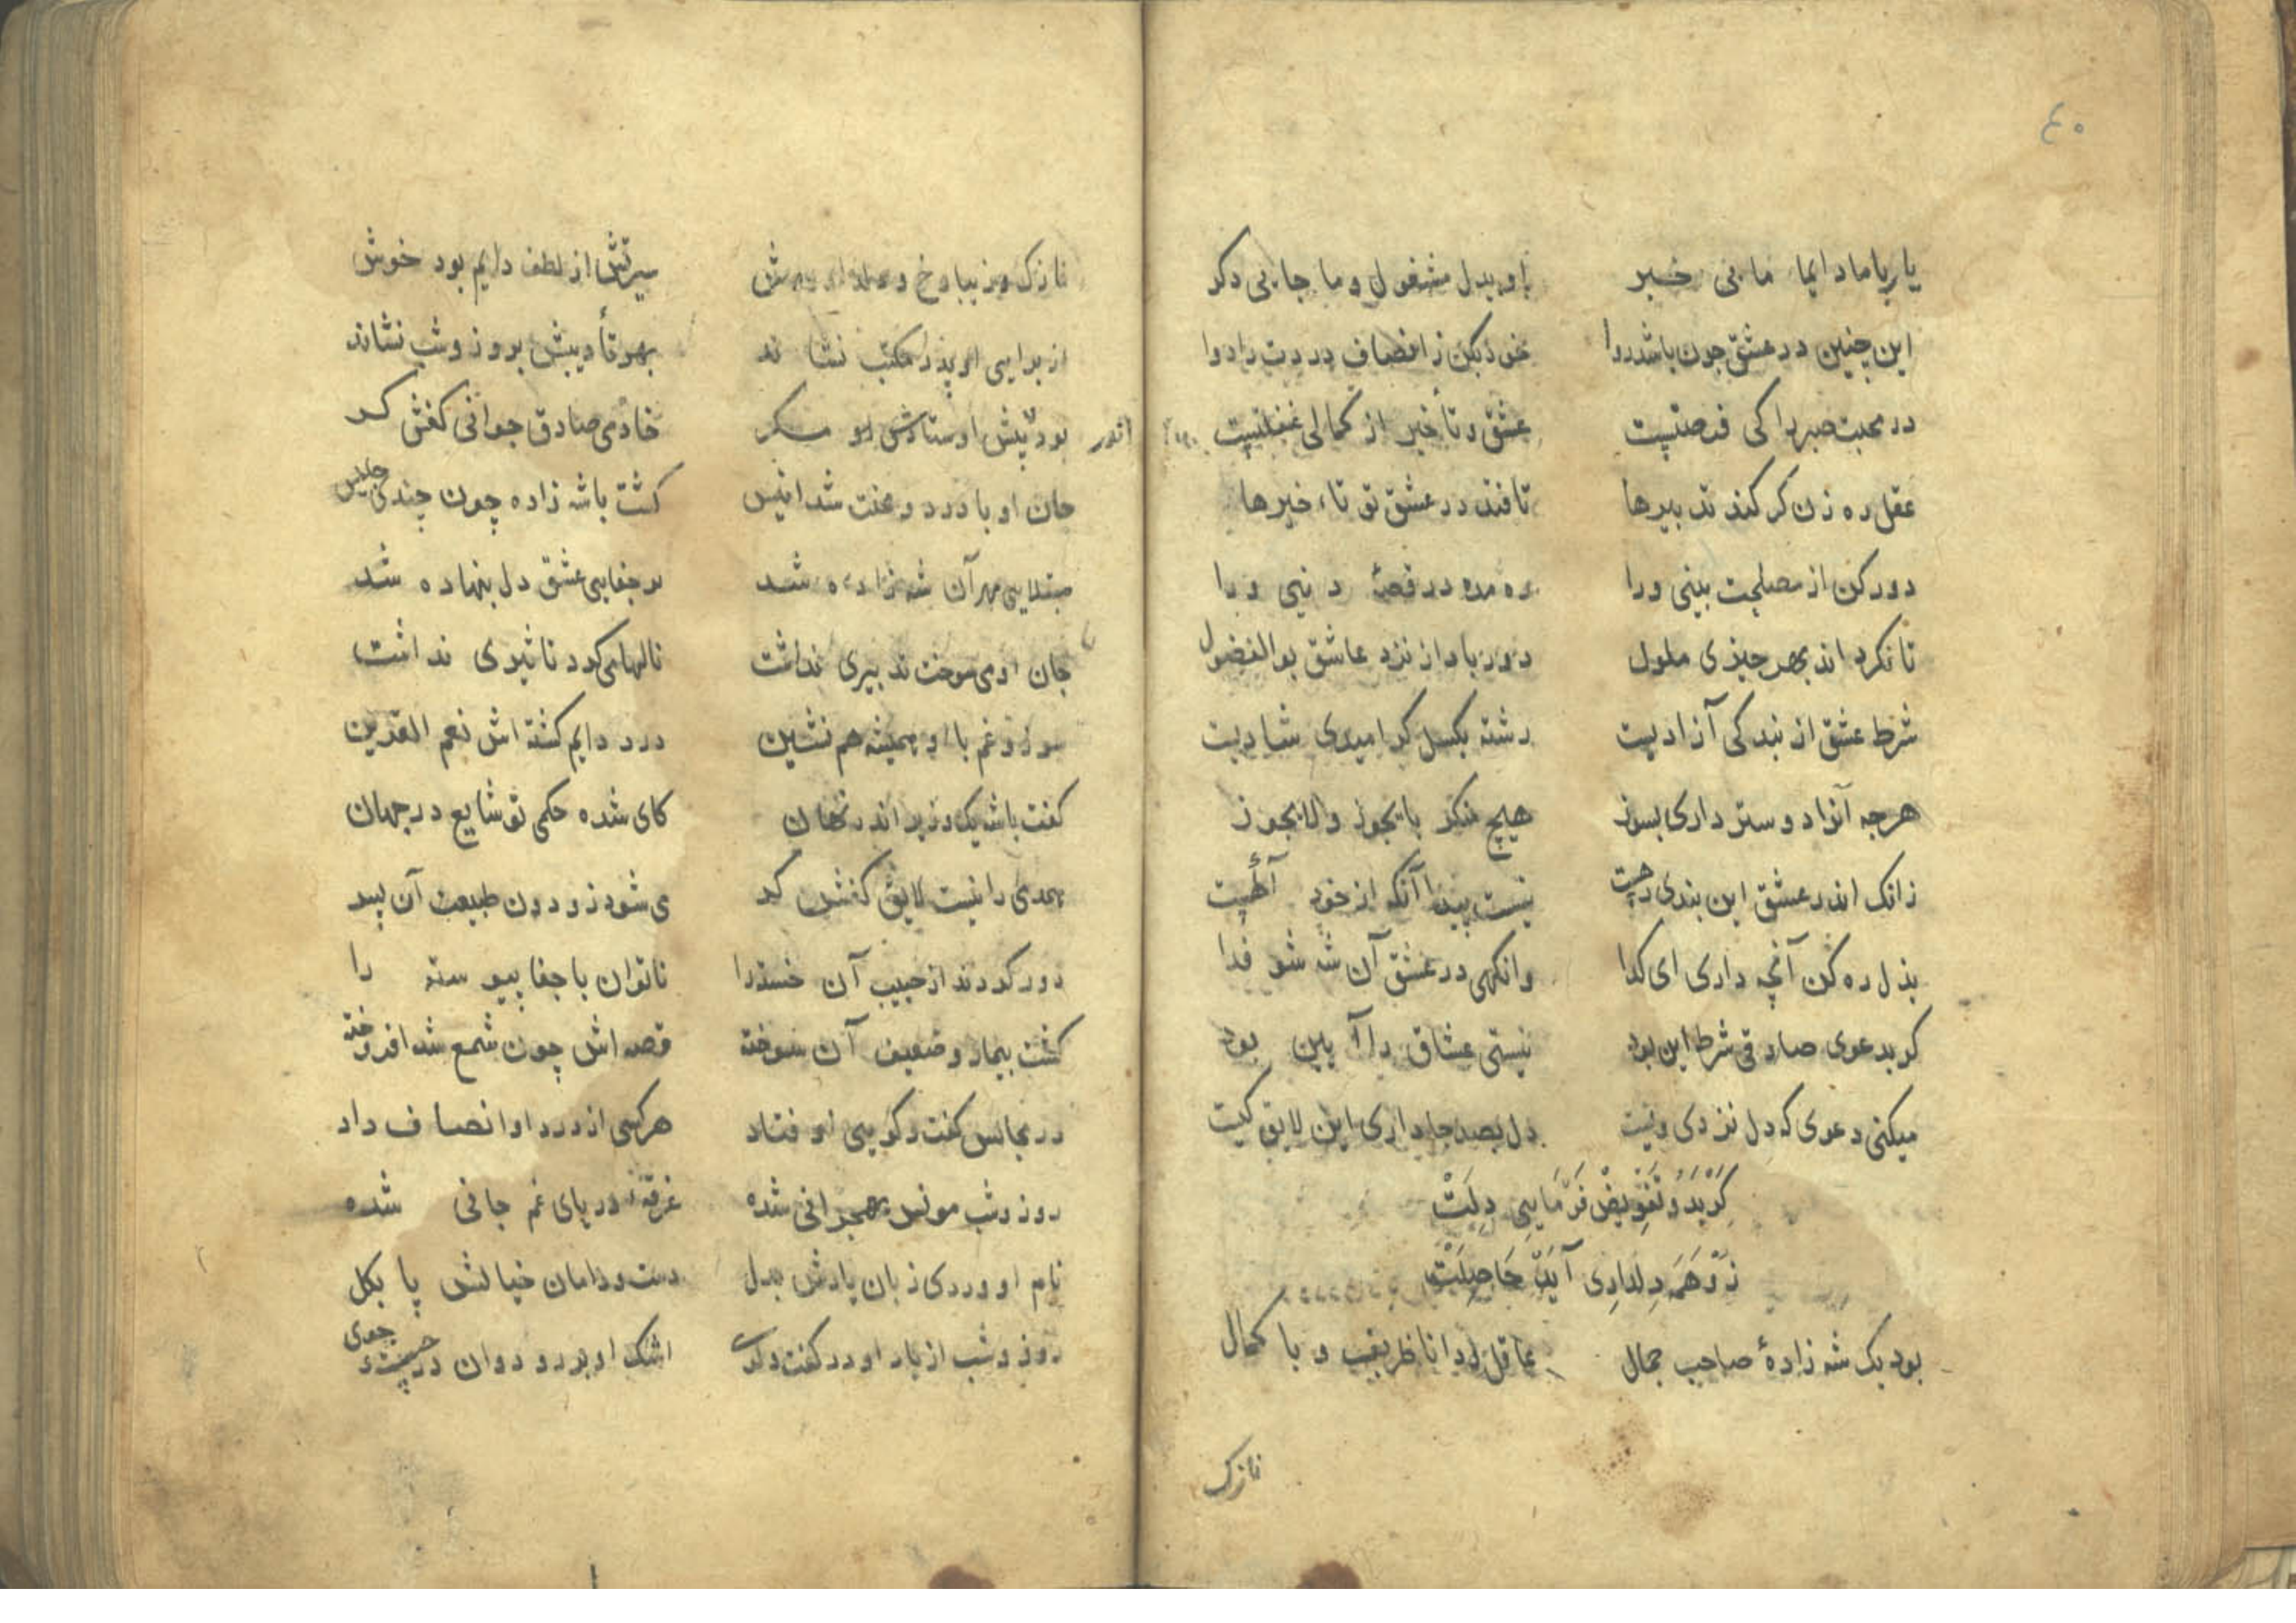 ٤٠
یار با ما دایما ما بی خبر باو بدل مشغول و ما جایی دکر
این چنین در عشق جون باشد روا خون بکن ز انصاف دردت را دوا
در محبت صبر را کی فرصتیست عشق و تأخیر از کمالی غفلتیست
عقل ره زن کر کند تدبیرها تا فتد در عشق تو تاء خیرها
دور کن از مصلحت بینی ورا ره مده در قصهٔ دنیی ورا
تا نکرد اند بهر چیزی ملول دور باد از نزد عاشق بو الفضول
شرط عشق از بند کی آزادیست رشته بکسل کر امیدی شادیت
هرچه آنرا دوستر داری بسوز هیچ منکر با یجوز و لا یجوز
زانک اندر عشق این بندی رهیت نیست پیدا آنکه از خود آکهیت
بذل ره کن آنچه داری ای کدا وانکهی در عشق آن شه شو فدا
کر بدعوی صادقی شرط این بود نیستی عشاق را آیین بود
میکنی دعوی که دل نزدی ویت دل بصد جا داری این لایق کیت
کر بدو تفویض فرمایی دلت
زو همه دلداری آید حاصلت
بود یک شه زادهٔ صاحب جمال عاقل و دانا ظریف و با کمال
نازک
نازک و زیبا رخ و سیرتش از لطف دایم بود خوش
از برایی او پدر مکتب نشاند بهر تأدیبش بروز و شب نشاند
بود پیش اوستادش او مکر خادمی صادق جوانی کفش کر
جان او با درد و محنت شد انیس کشت با شه زاده چون چندی جلیس
مبتلایی مهر آن شه زاده شد بر جفایی عشق دل بنهاده شد
جان او می سوخت تدبیری نداشت نالها می کرد تاثیری نداشت
سوز و غم با او همیشه هم نشین درد دایم کشته اش نعم القرین
کفت با شه یک وزیر اندر نهان کای شده حکمی تو شایع در جهان
همدمی را نیست لایق کفش کر می شود زو دون طبیعت آن پسر
دور کردند از حبیب آن خسته را ناتوان با جفا پیوسته را
کشت بیمار و ضعیف آن سوخته قصه اش چون شمع شد افروخته
در مجالس کفت و کویی او فتاد هرکسی از درد او انصاف داد
روز و شب مونس بهجرانی شده غرقهٔ دریای غم جانی شده
نام او وردی زبان یادش بدل دست و دامان خیالش پا بکل
روز و شب از یاد او در کفت و کوی اشک او بر رو دوان در جست و جوی